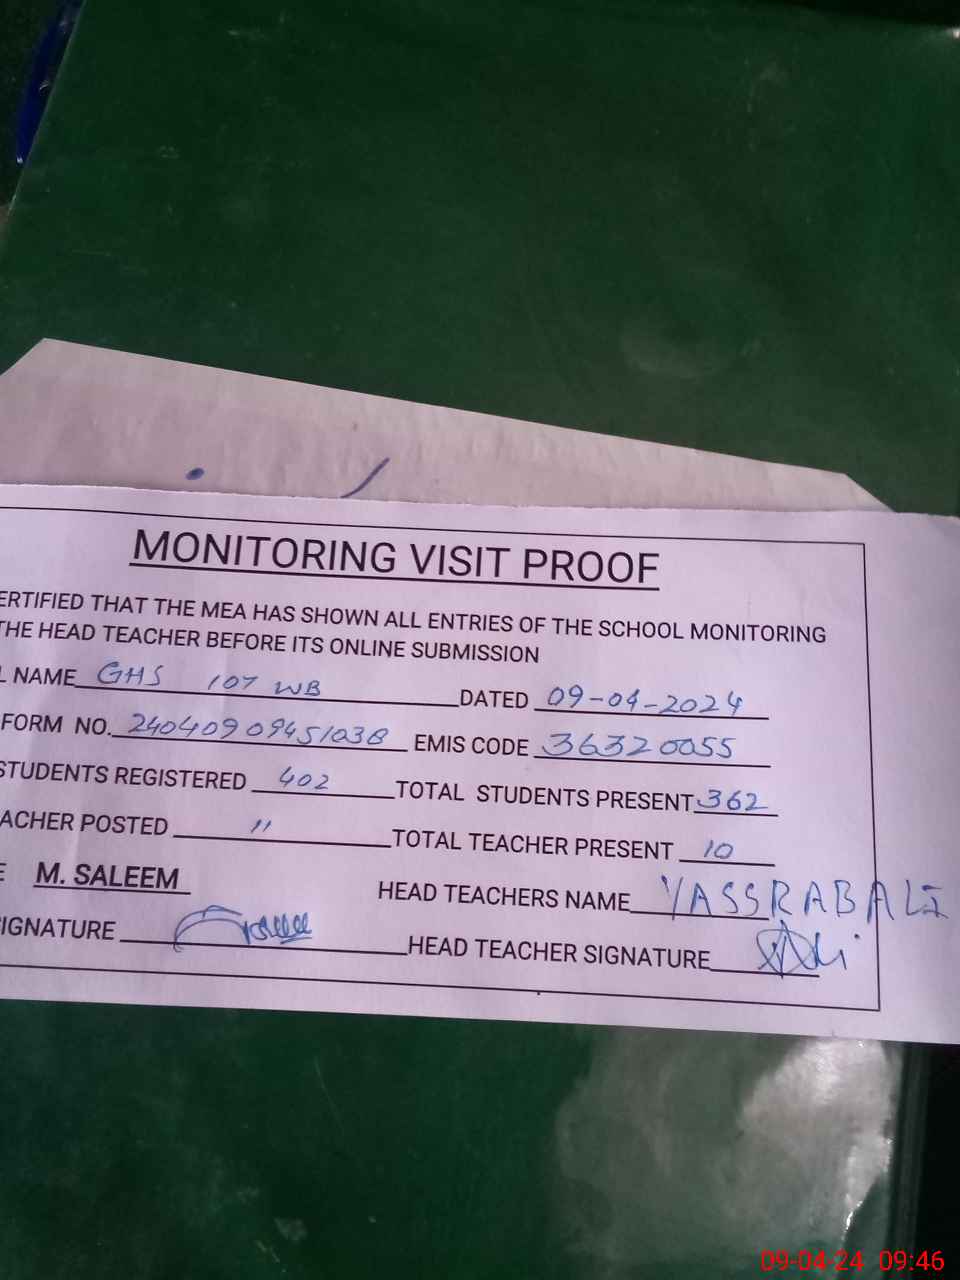 MONITORING VISIT PROOF
ERTIFIED THAT THE MEA HAS SHOWN ALL ENTRIES OF THE SCHOOL MONITORING
THE HEAD TEACHER BEFORE ITS ONLINE SUBMISSION
L NAME GHS 107 WB DATED 09-04-2024
FORM NO. 24040909451038 EMIS CODE 36320055
STUDENTS REGISTERED 402 TOTAL STUDENTS PRESENT 362
ACHER POSTED 11 TOTAL TEACHER PRESENT 10
E M. SALEEM HEAD TEACHERS NAME YASSRAB ALI
IGNATURE HEAD TEACHER SIGNATURE
09-04-24 09:46